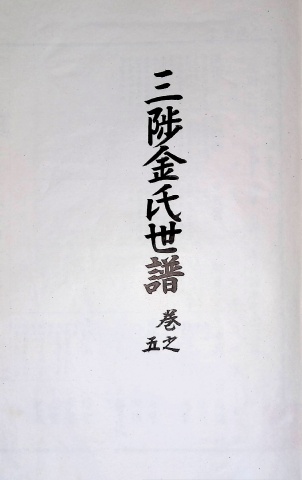 三陟金氏世譜
卷之五